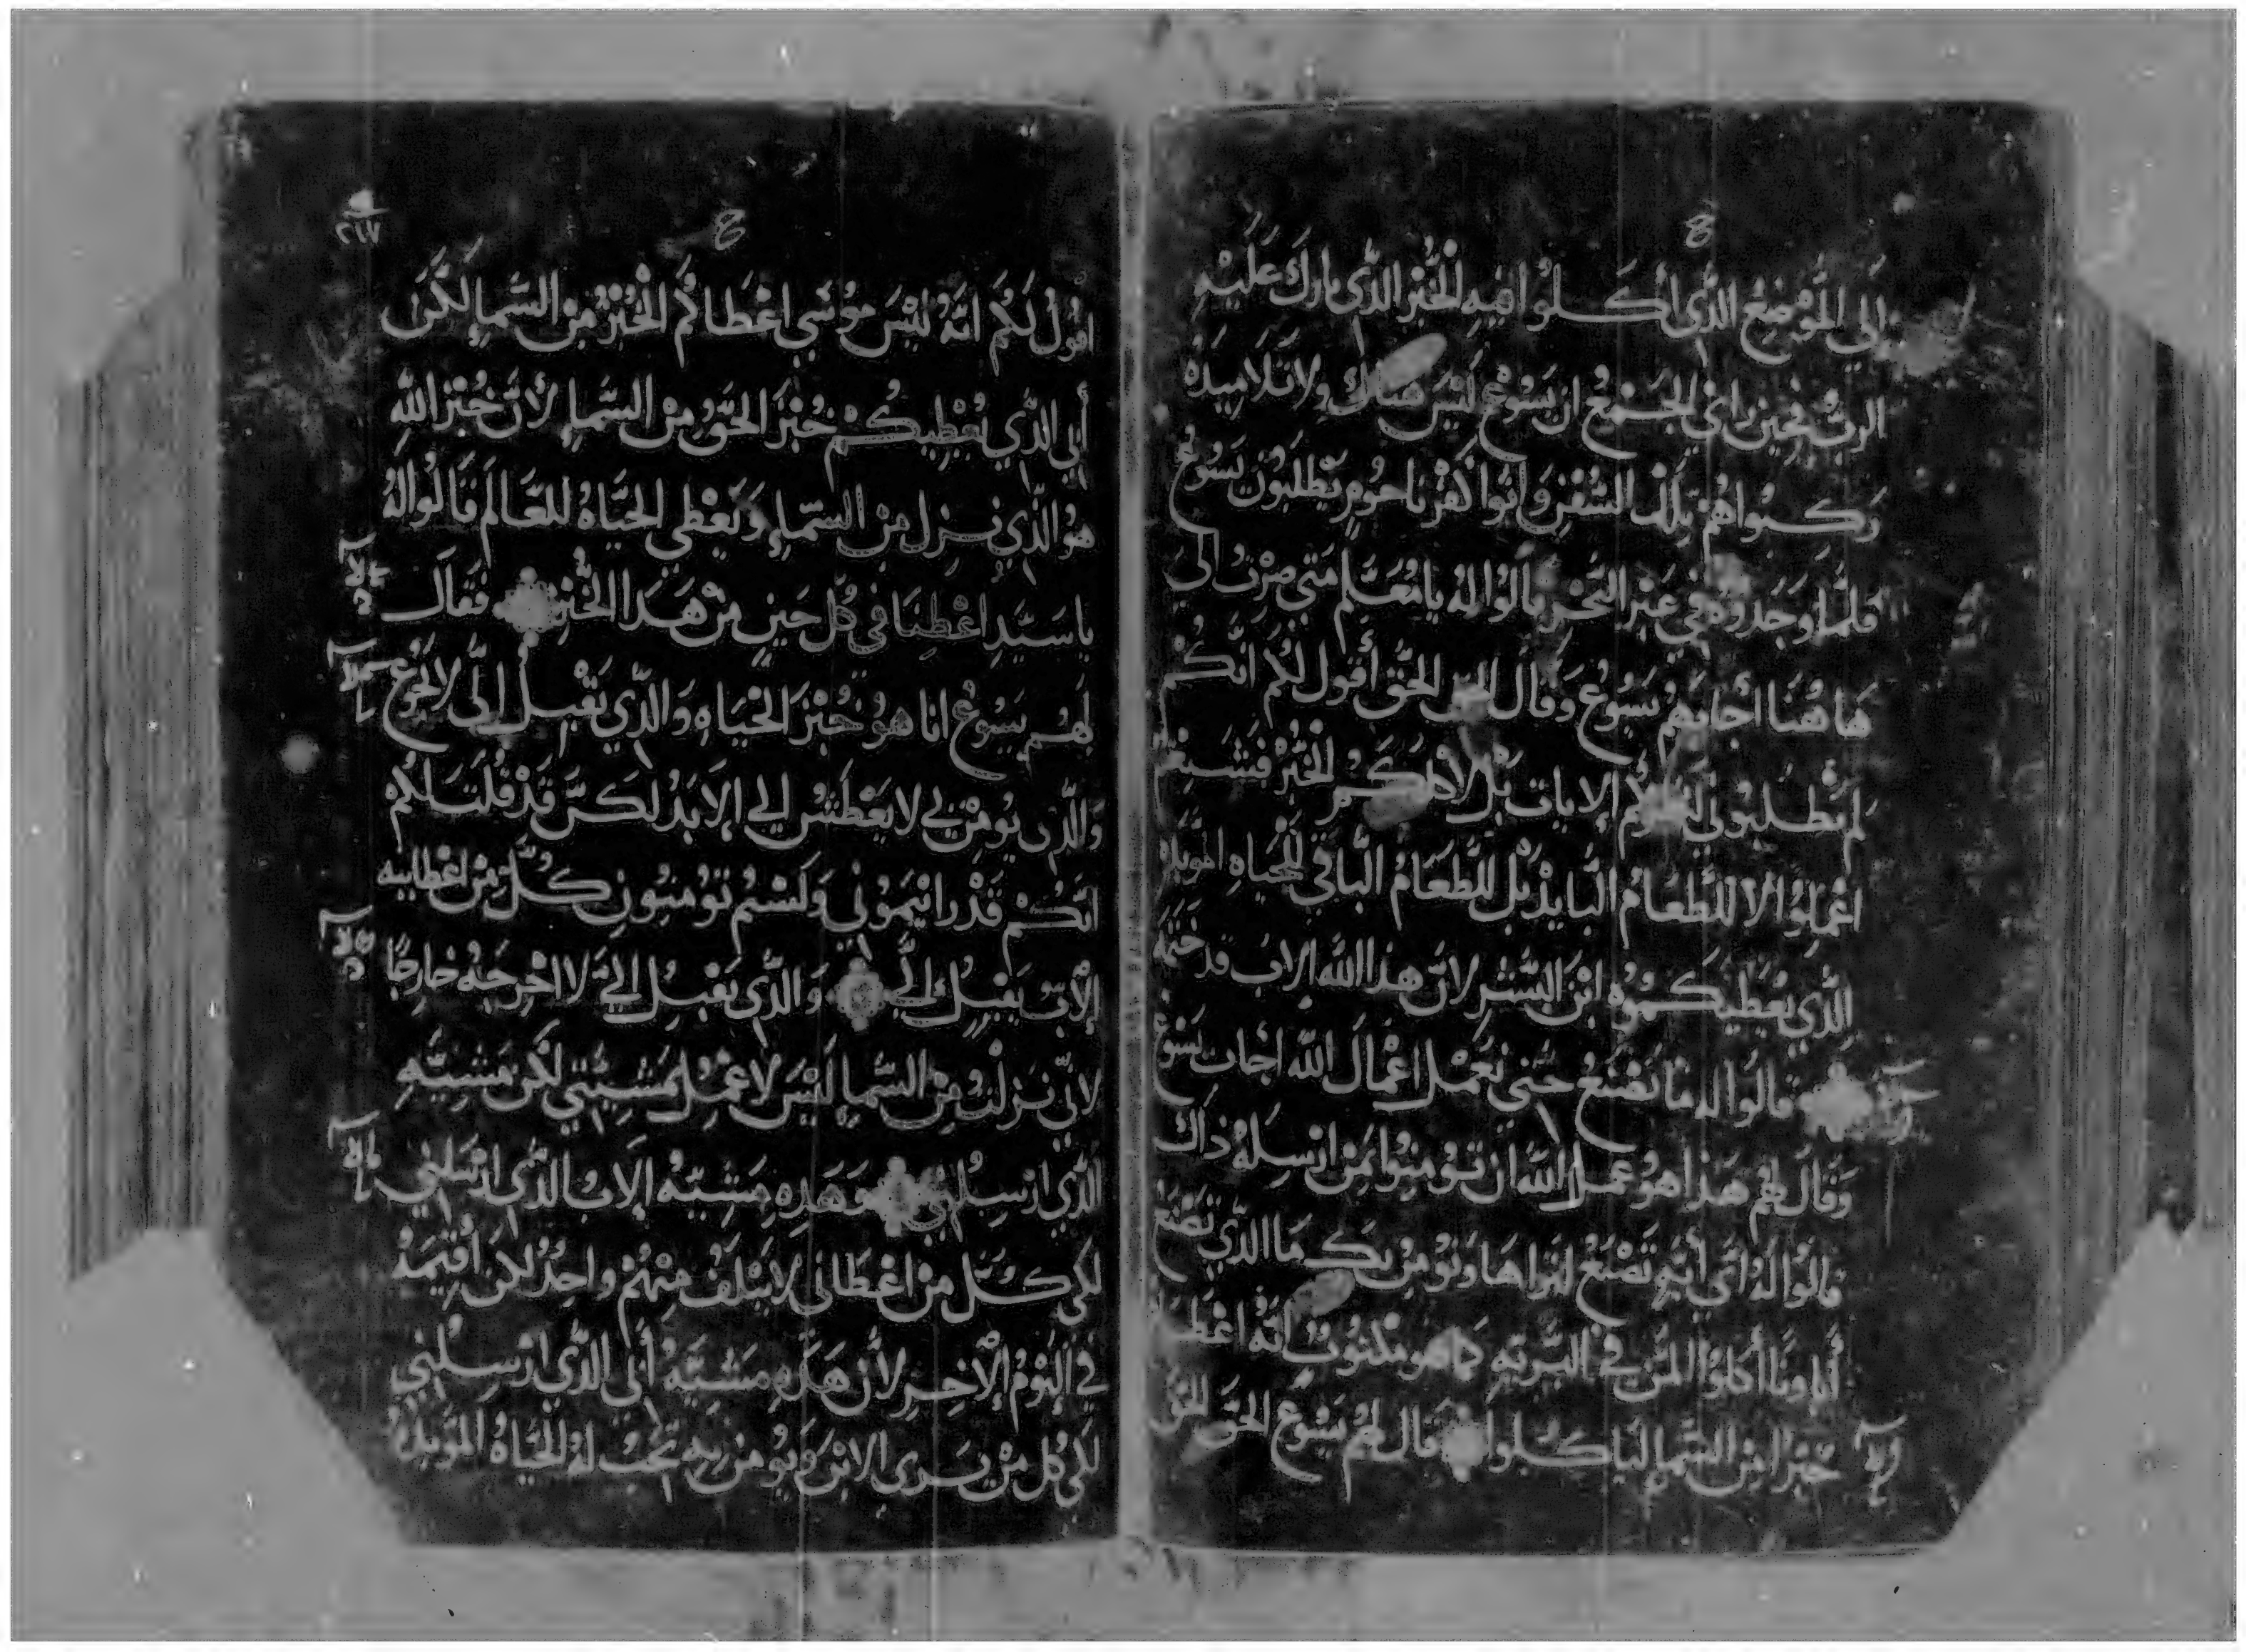 إلى المَوْضِعِ الذَّي أكَلُوا فيهِ الخُبْز الذَّي بارك عَلَيْهِ
الربُّ فحين راي الجَمْعُ ان يَسُوعْ لَيْسَ هناك ولا تلاميذهُ
رَكبُوا هُمْ تِلك السُفْن وَاتوا كفرناحوم يَطْلبُون يَسُوعْ
فلمَّا وَجَدوهُ في عَبْر البَحْر قالوا لهُ يا مُعَلّم مَتي صِرْت الى
هَا هُنَا أجابَهمْ يَسُوعْ وَقال الحق الحَق أقول لكُمْ انكُمْ
لم تطلبوني الايات بَل لأكلكم الخُبْز فشبعتم
اعْمَلوُا لا للطعَامُ البايدْ بَل للطعَامُ الباقي للحياهِ المؤبدة
الذَّي يُعْطيكمُوهُ ابْنَ البَشر لانَّ هذا الله الاب قد خَتَمَهُ
قالوُا له مَا نصْنَعُ حتي نَعْمَل اعْمَالَ الله اجابَ يَسُوعْ
وَقال لهم هذا هوُ عمل الله ان تومِنوُا بمَن ارْسِلهُ ذاك
قالوُا لهُ اي أيه تَصْنَعُ لنراها وَنُؤمن بك مَا الذَّي تصْنَع
أباونا أكلوُا المنَّ في البَريهِ كما هو مكتوبْ انهُ اعْطاهم
خبزا مِن السَّماء لياكلوا قال لهُمْ يَسُوعْ الحَق الحَق
٢٦٧
اقولُ لَكُم انهُ لَيْسَ مُوسَي اعْطاكُم الخُبْزُ مِن السَّماءِ لكن
أبي الذَّي يُعْطِيكُمْ خُبْزَ الحَقُ مِنْ السَّماءِ لأنَّ خُبْز الله
هوُ الذَّي نزل مِن السَّماءِ وَيَعْطي الحَيَاهُ للعَالَم قَالوُا لهُ
يا سَيّدِ اعْطِنَا في كل حَينٍ مِنْ هَذا الخُبْز فقالَ
لهُم يَسُوعْ انا هوُ خُبْز الحَيَاهِ وَالذَّي يَقْبل إلَى لا يَجُوعْ
وَالذَّى يوُمن بي لا يَعْطَشْ إلي الابَدْ لكنَّ قَدْ قُلتَ لكُمْ
انَّكُمْ قَدْ رايتمُوني وَلَسْتُم تؤُمنوُن كُلَّ مِن اعْطانيه
الأبّ يَقْبلُ إلَيَّ وَالذَّي يَقْبلُ إليَّ لا اخْرِجَهُ خارجًا
لاني نزلتُ مِن السَّماءِ لَيْسَ لاعْمَل مَشيَّتي لكن مَشيَّهِ
الذَّي ارْسِلني وَهَذِهِ مَشيَّهُ الابُ الذَّي ارْسَلني
لكي كُلَّ مَنْ اعْطَاني لا يتلفُ مِنْهُمْ واحدٌ لكن أقيمَهُ
في اليَوْمِ الآخِر لأنَّ هَذِهِ مَشيَّهُ أبي الذَّي ارْسِلني
لكي كُل مَنْ يَرى الابْن وَيؤمن بهِ تجبُ لهُ الحَيَاهُ المؤبدهُ